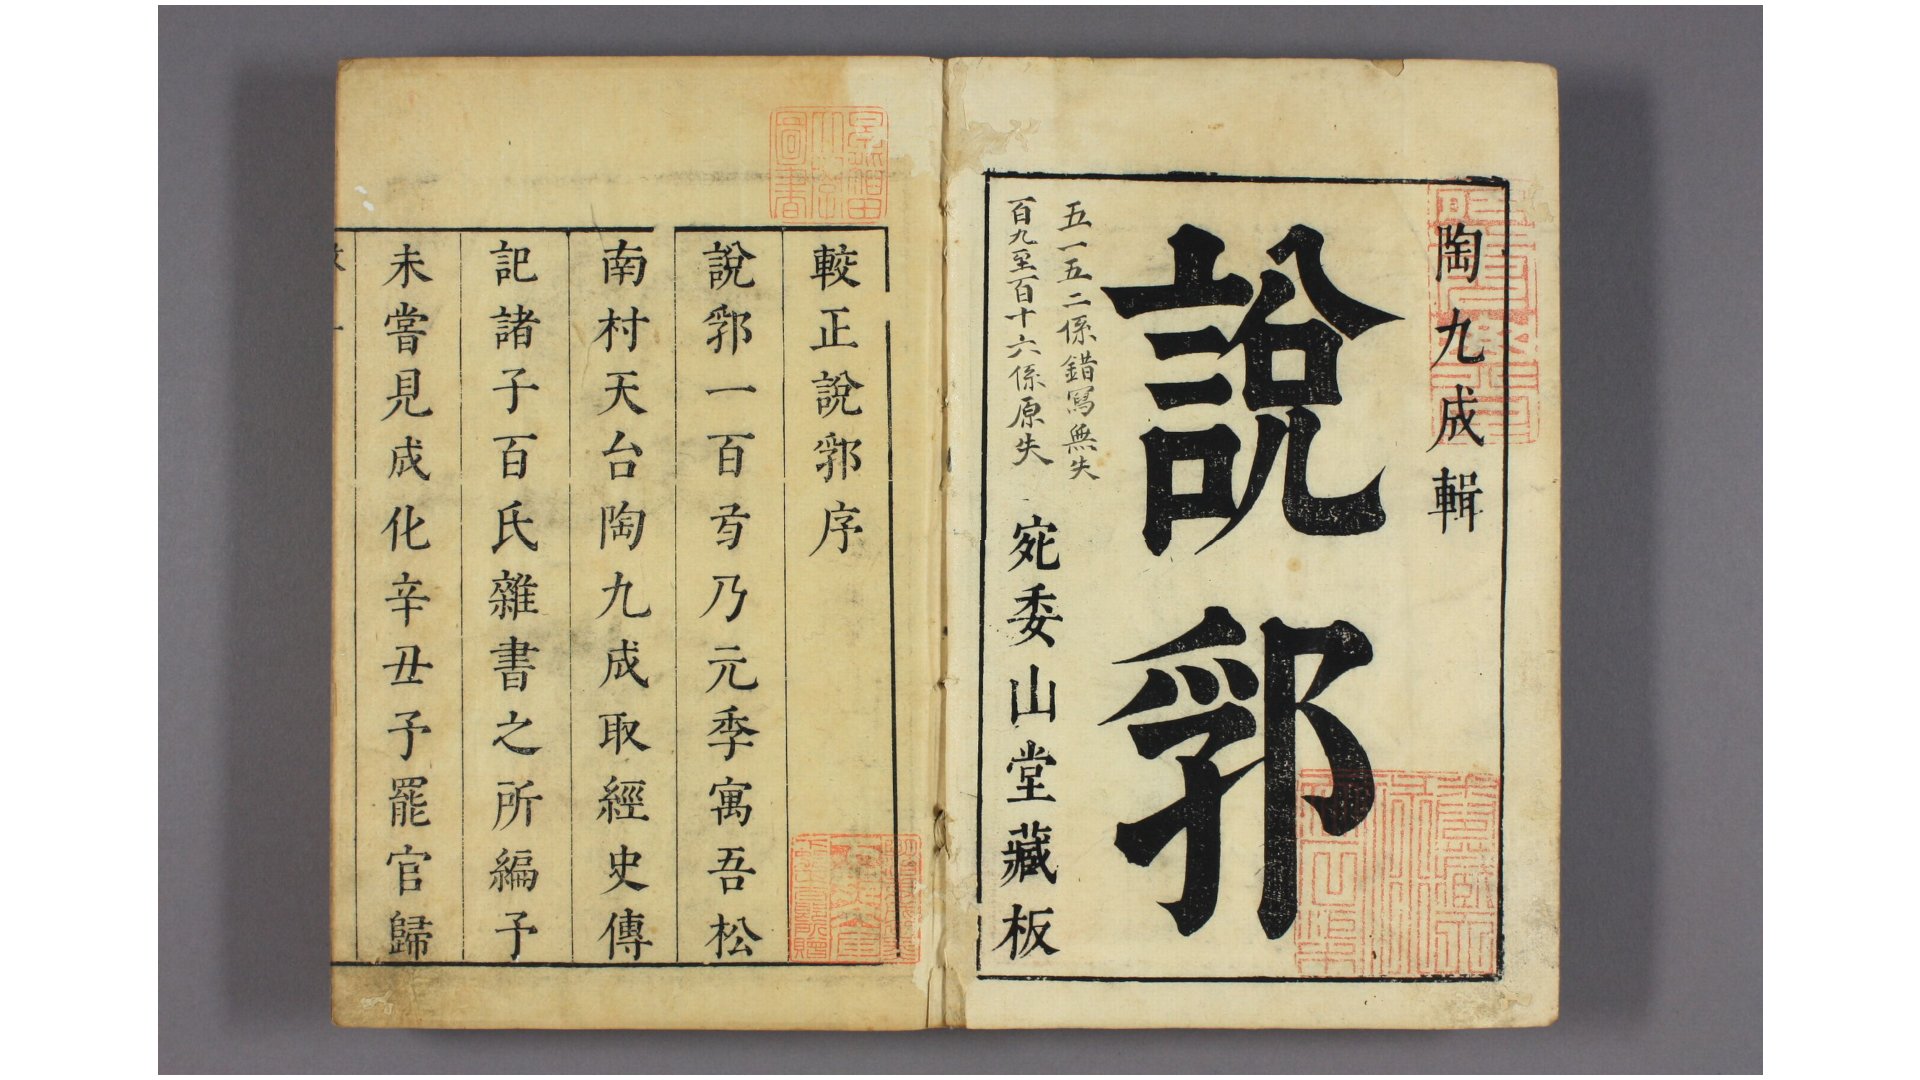 陶九成輯
說郛
五一五二係錯寫無失
百九至百十六係原失
宛委山堂藏板
較正說郛序
說郛一百弓乃元季寓吾松
南村天台陶九成取經史傳
記諸子百氏雜書之所編予
未嘗見成化辛丑予罷官歸